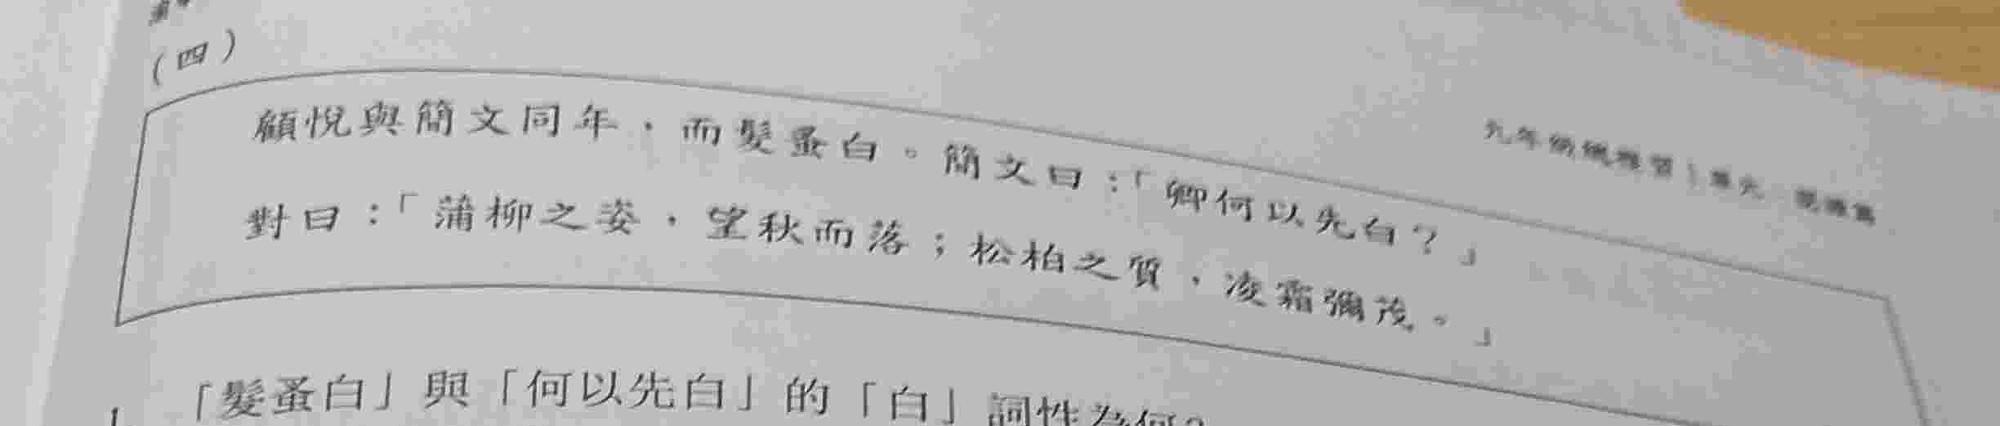 (四)
九年級總複習
顧悅與簡文同年，而髮蚤白。簡文曰：「卿何以先白？」
對曰：「蒲柳之姿，望秋而落；松柏之質，凌霜彌茂。」
1. 「髮蚤白」與「何以先白」的「白」詞性為何？